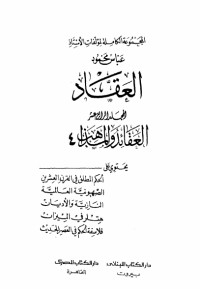 المجموعة الكاملة لمؤلفات الأستاذ
عباس محمود
العقاد
المجلد الرابع عشر
العقائد والمذاهب ٤
يحتوي على
الحكم المطلق في القرن العشرين
الصهيونية العالمية
النازية والأديان
هتلر في الميزان
فلاسفة الحكم في العصر الحديث
دار الكتاب اللبناني
بيروت
دار الكتاب المصري
القاهرة